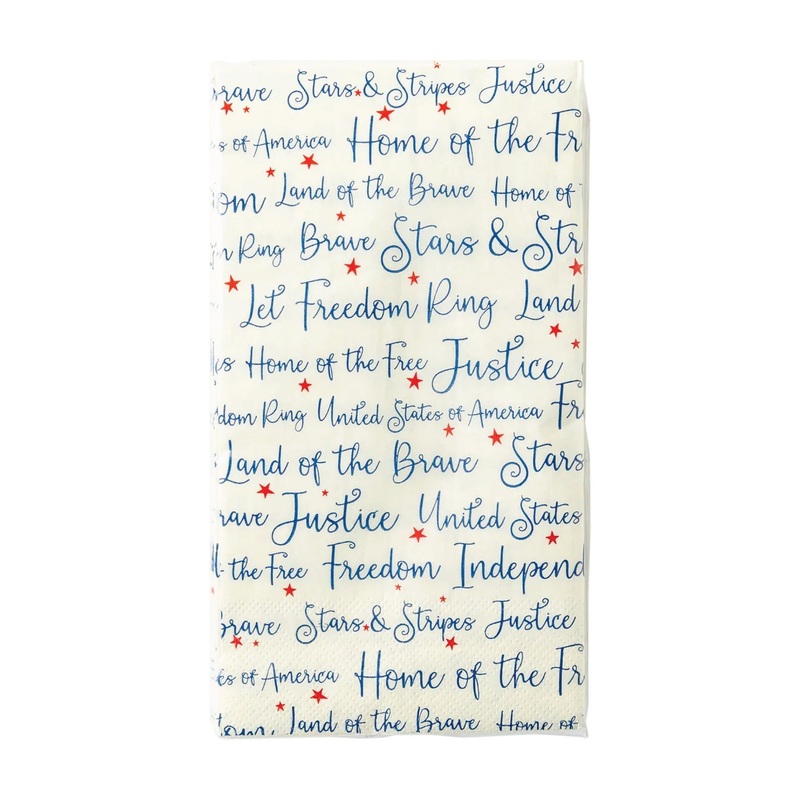 Brave Stars & Stripes Justice
es of America Home of the Fr
om Land of the Brave Home of
m Ring Brave Stars & Str
Let Freedom Ring Land
Home of the Free Justice
dom Ring United States of America Fr
Land of the Brave Stars
rave Justice United States
the Free Freedom Independ
Brave Stars & Stripes Justice
es of America Home of the Fr
tom Land of the Brave Home of